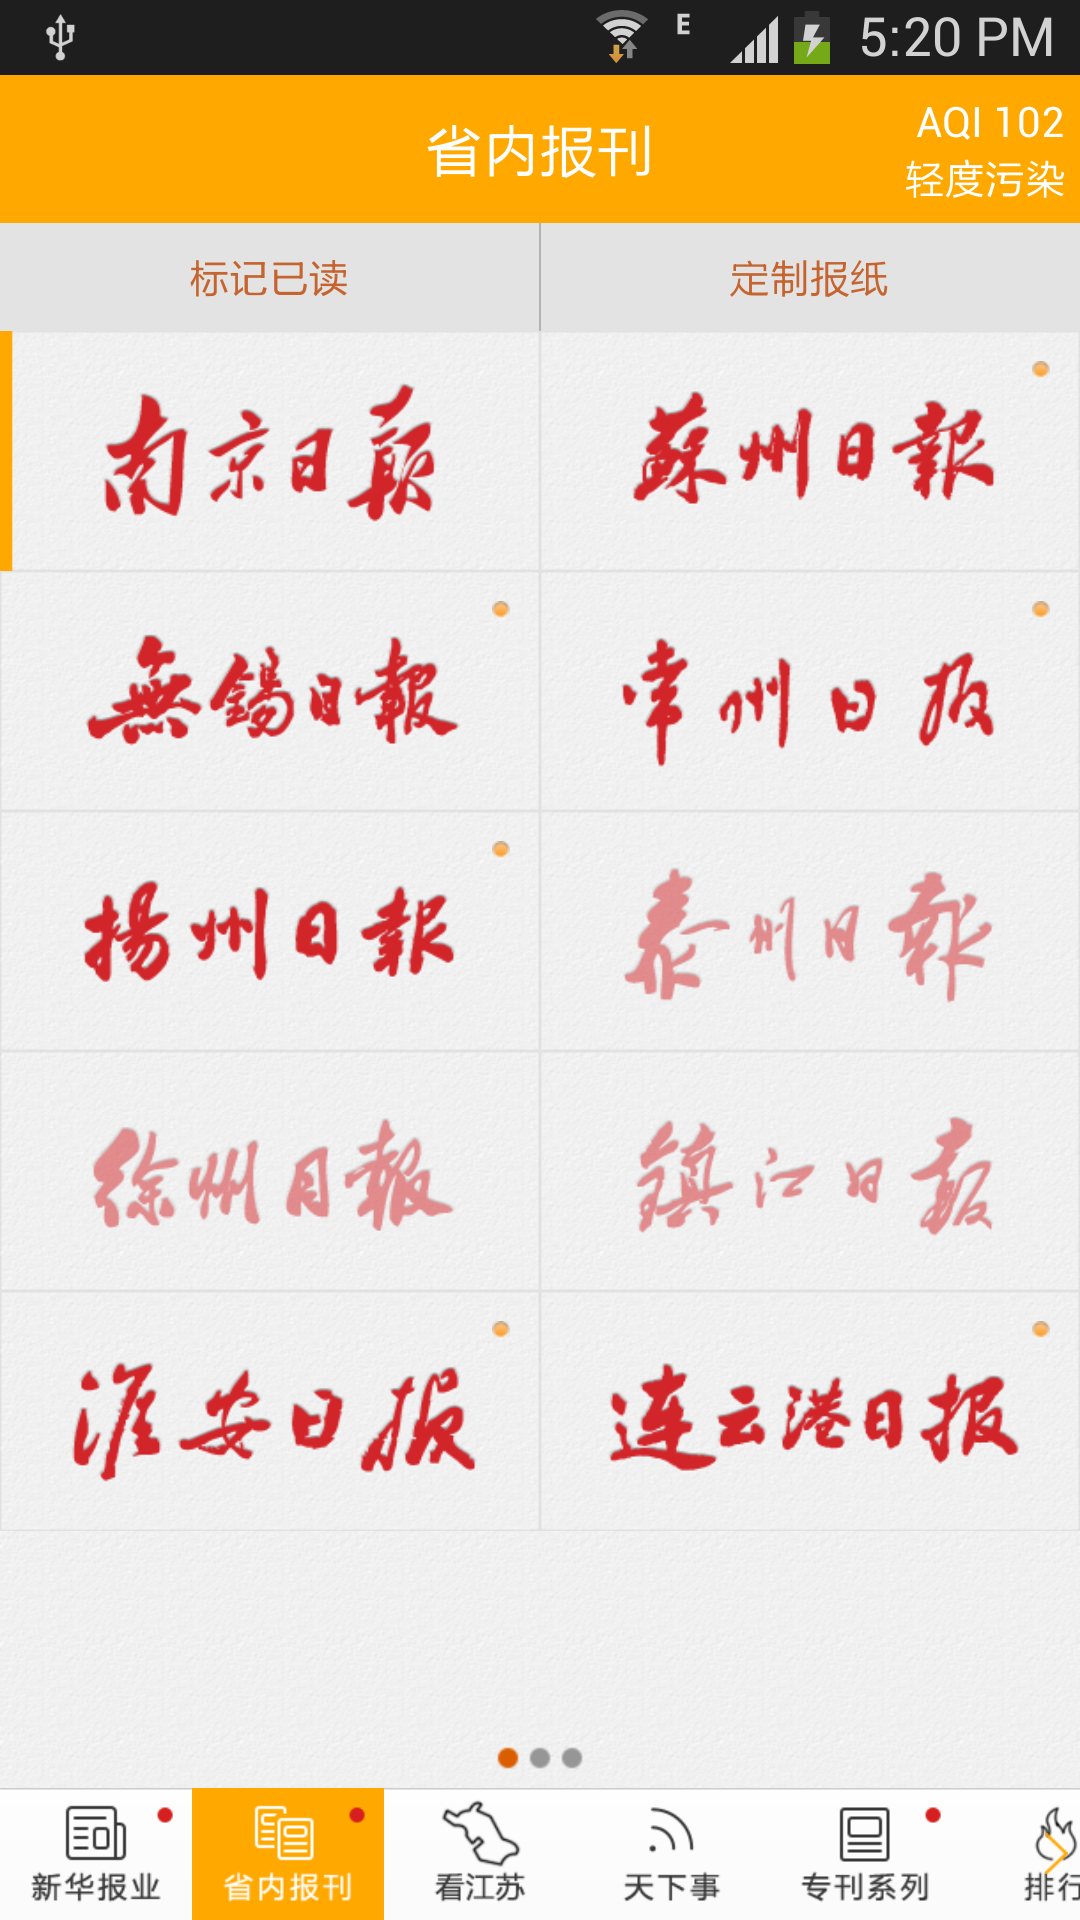 E 5:20 PM
省内报刊
AQI 102
轻度污染
标记已读 定制报纸
南京日报 蘇州日報
無錫日報 常州日报
揚州日報 泰州日報
徐州日報 镇江日报
淮安日报 连云港日报
新华报业 省内报刊 看江苏 天下事 专刊系列 排行